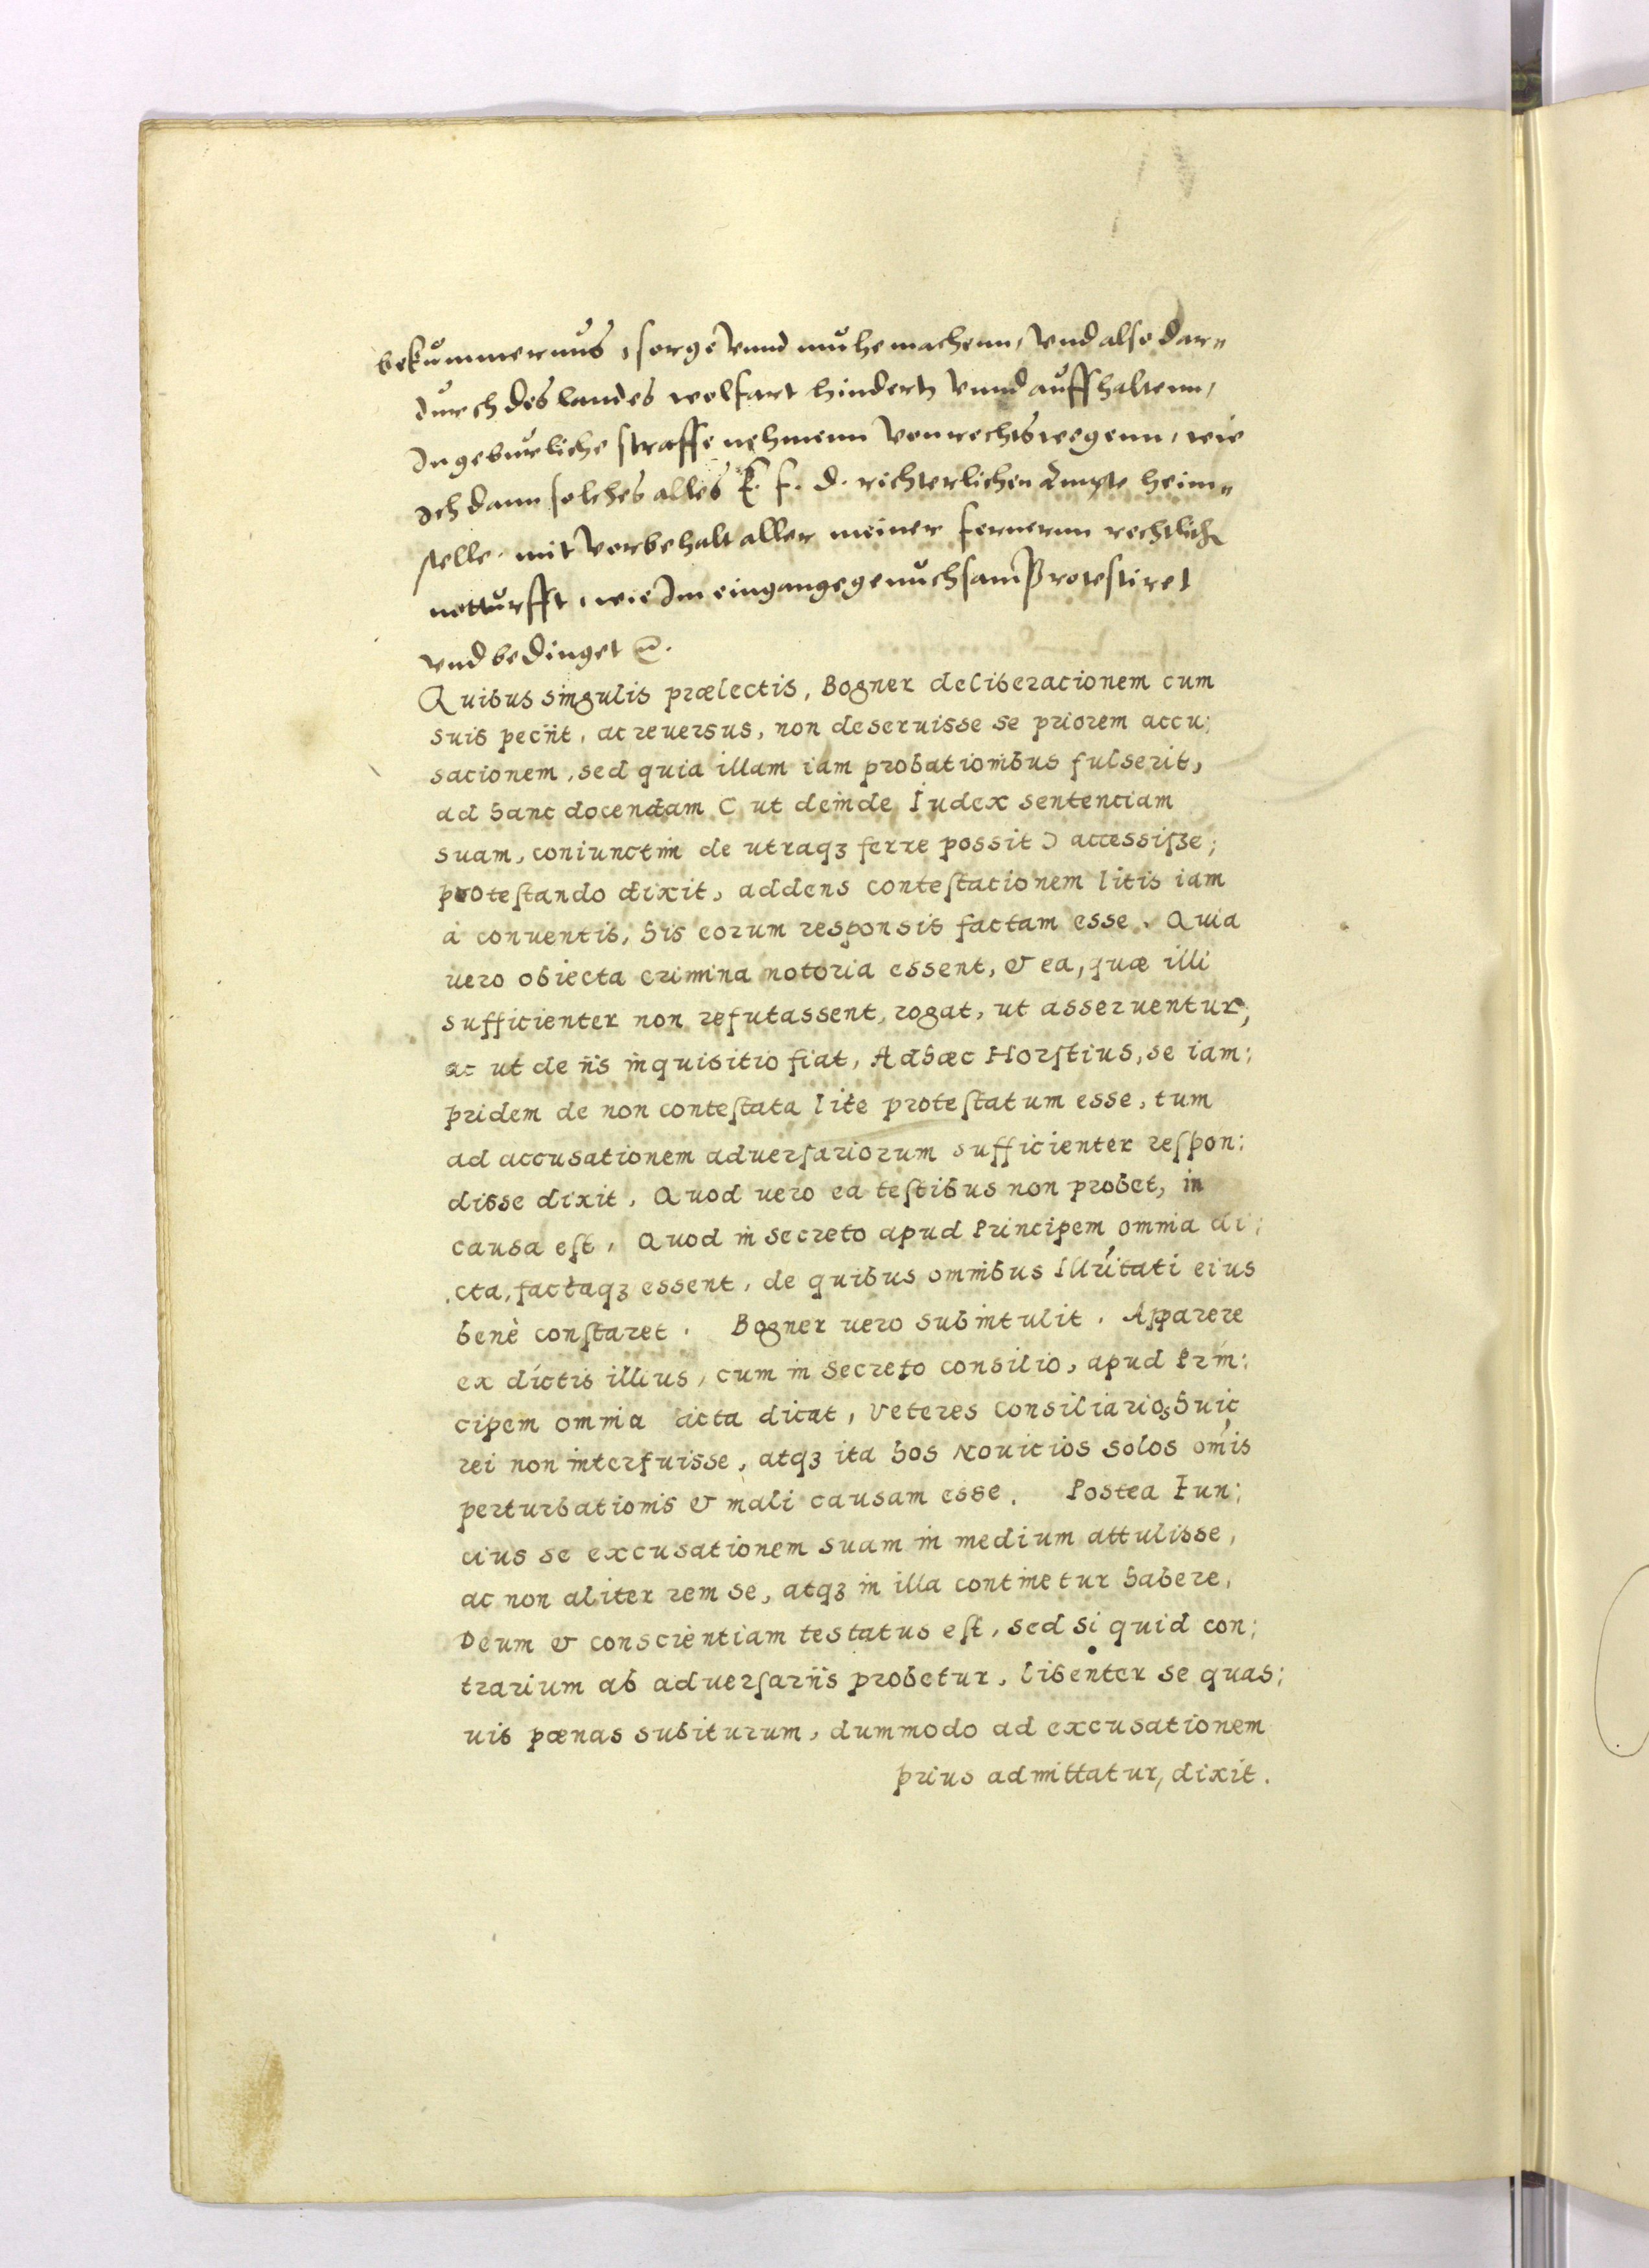 bekůmmernůs, sorge vnnd můhe machenn, vnd also dar„
důrch des landes wolfart hindertz vnnd aůffhaltenn,
In gebůrliche straffe nehmenn von rechts wegenn, wie
Ich dann solches alles E. F. D. richterlichen Ampte heim„
stelle, mit vorbehalt aller meiner fernernn rechtlich
nottůrfft, wie Im eingange genůchsam Protestiret
vnd bedinget ꝛc.
Quibus singulis prælectis, Bogner deliberacionem cum
suis peciit, ac reuersus, non deseruisse se priorem accu:
sacionem, sed quia illam iam probationibus fulserit,
ad hanc docendam ( ut deinde Iudex sentenciam
suam, coniunctim de utraqꝫ ferre possit ) accessiſse;
proteſtando dixit, addens conteſtacionem litis iam
à conuentis, his eorum responsis factam esse. Quia
uero obiecta crimina notoria essent, & ea, quæ illi
sufficienter non refutassent, rogat, ut asseruentur,
ac ut de iis inquisitio fiat, Ad hæc Horſtius, se iam:
pridem de non conteſtata lite proteſtatum esse, tum
ad accusationem aduerſariorum sufficienter reſpon:
disse dixit, Quod uero ea teſtibus non probet, in
causa eſt, Quod in secreto apud Principem omnia di:
cta, factaqꝫ essent, de quibus omnibus Illũitati eius
benè conſtaret. Bogner uero subintulit. Apparere
ex dictis illius, cum in secreto consilio, apud Prin:
cipem omnia acta dicat, Veteres Consiliarios huic
rei non interfuisse, atqꝫ ita hos Nouicios solos om̃is
perturbationis & mali causam esse. Postea Fun:
cius se excusationem suam in medium attulisse,
ac non aliter rem se, atqꝫ in illa continetur habere,
Deum & conscientiam testatus eſt, sed si quid con:
trarium ab aduerſariis probetur, libenter se quas:
uis pœnas subiturum, dummodo ad excusationem
prius admittatur, dixit.